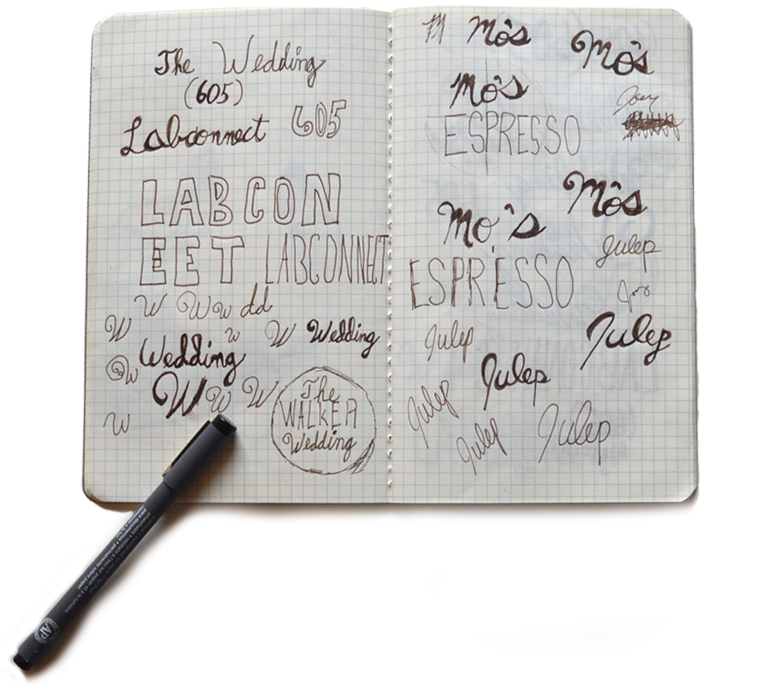 The Wedding
(605)
Labconnect 605
LABCON
EET LABCONNECT
W W w dd
W w W Wedding
W Wedding
W W W
W
The
WALKER
Wedding
M Mo's Mo's
Mo's
Joey
ESPRESSO
Mo's
Mo's
Julep
ESPRESSO
Julep Julep
Julep
Julep Julep
Julep